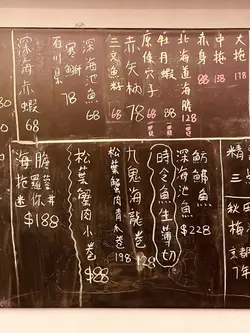 大拖
中拖 138
赤身 98
88
北海道海膽 128
牡丹蝦 68
原條穴子 68
赤矢柄 78
三文魚 68
深海池魚 68
寒鰤
石川縣 78
深海赤蝦 68
鮫鱇魚
深海池魚 $228
時令魚生薄切
九鬼海龍卷 128
松葉蟹肉青瓜卷 198
松葉蟹肉小卷 $88
膽
海拖羅蓉
迷你丼 $188
精
三
秋田
梅
京都
7年